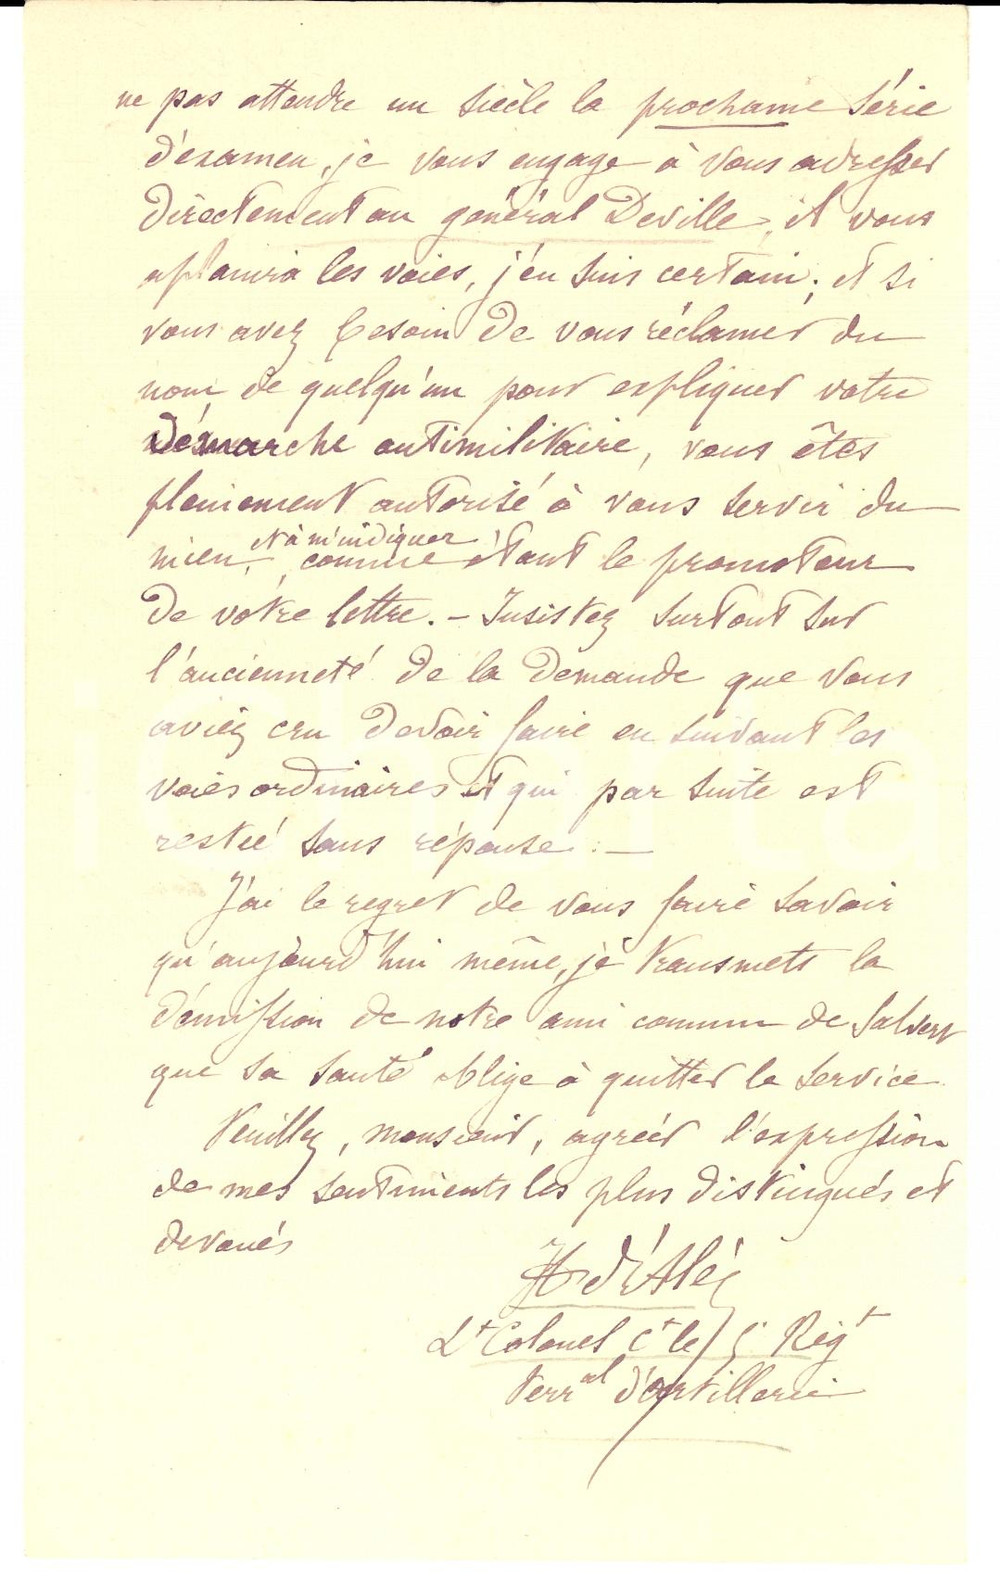 ne pas attendre un siècle la prochaine série
d'examen, je vous engage à vous adresser
directement au général Deville, il vous
aplanira les voies, j'en suis certain ; et si
vous avez besoin de vous réclamer du
nom de quelqu'un pour expliquer votre
démarche antimilitaire, vous êtes
pleinement autorisé à vous servir du
mien, et à m'indiquer comme étant le promoteur
de votre lettre. - Insistez surtout sur
l'ancienneté de la demande que vous
aviez cru devoir faire en suivant les
voies ordinaires et qui par suite est
restée sans réponse. -
J'ai le regret de vous faire savoir
qu'aujourd'hui même, je transmets la
démission de notre ami commun de Salvert
que sa santé oblige à quitter le service.
Veuillez, monsieur, agréer l'expression
de mes sentiments les plus distingués et
dévoués
H d'Alès
Lt Colonel Ct le Régt
Terral d'artillerie